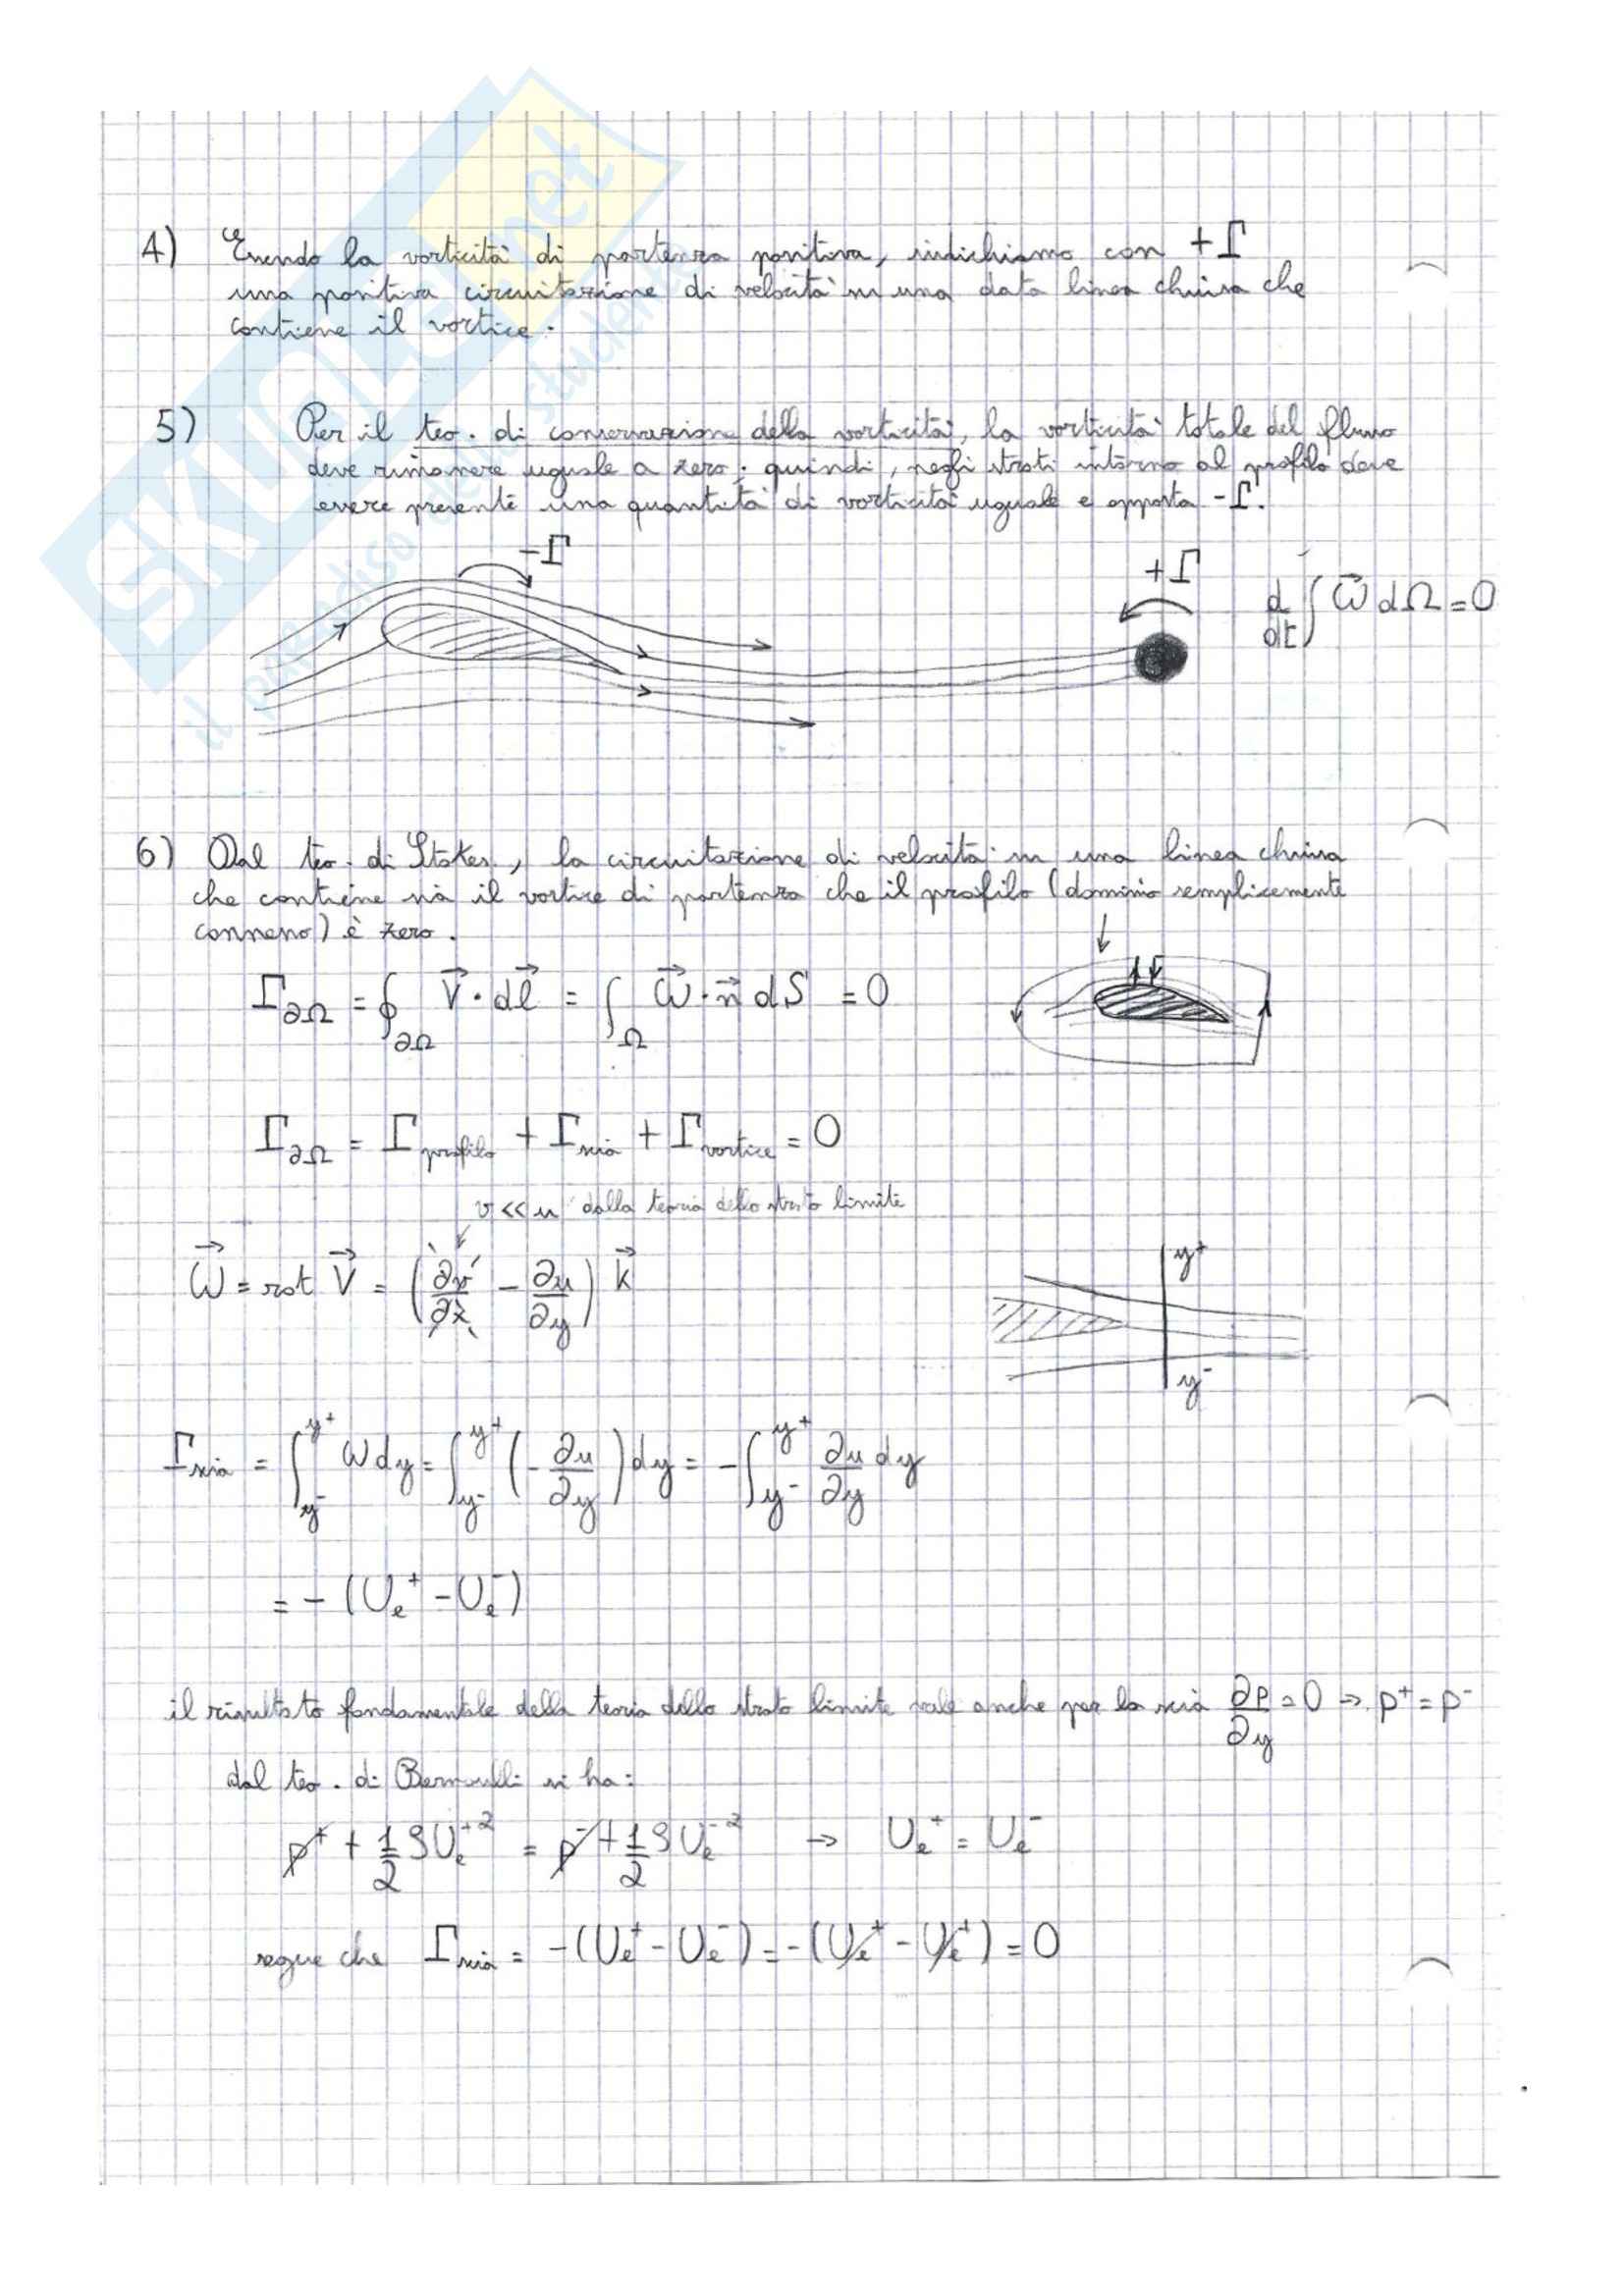 4) Essendo la vorticità di partenza positiva, indichiamo con +Γ
una positiva circuitazione di velocità su una data linea chiusa che
contiene il vortice.
5) Per il teo. di conservazione della vorticità, la vorticità totale del flusso
deve rimanere uguale a zero; quindi, negli strati intorno al profilo deve
essere presente una quantità di vorticità uguale e opposta -Γ.
-Γ
+Γ
d/dt ∫ ω⃗ dΩ = 0
6) Dal teo. di Stokes, la circuitazione di velocità su una linea chiusa
che contiene sia il vortice di partenza che il profilo (dominio semplicemente
connesso) è zero.
Γ∂Ω = ∮∂Ω V⃗ · dl⃗ = ∫Ω ω⃗ · n⃗ dS = 0
Γ∂Ω = Γprofilo + Γscia + Γvortice = 0
v << u dalla teoria dello strato limite
ω⃗ = rot V⃗ = (∂v/∂x - ∂u/∂y) k⃗
y+
y-
Γscia = ∫y-^y+ ω dy = ∫y-^y+ (-∂u/∂y) dy = -∫y-^y+ ∂u/∂y dy
= - (Ue+ - Ue-)
il risultato fondamentale della teoria dello strato limite vale anche per la scia ∂p/∂y = 0 ⇒ p+ = p-
dal teo. di Bernoulli si ha:
p+ + 1/2 ρ Ue+² = p- + 1/2 ρ Ue-² → Ue+ = Ue-
segue che Γscia = -(Ue+ - Ue-) = -(Ue+ - Ue+) = 0
SKUOLA.net
il paradiso dello studente